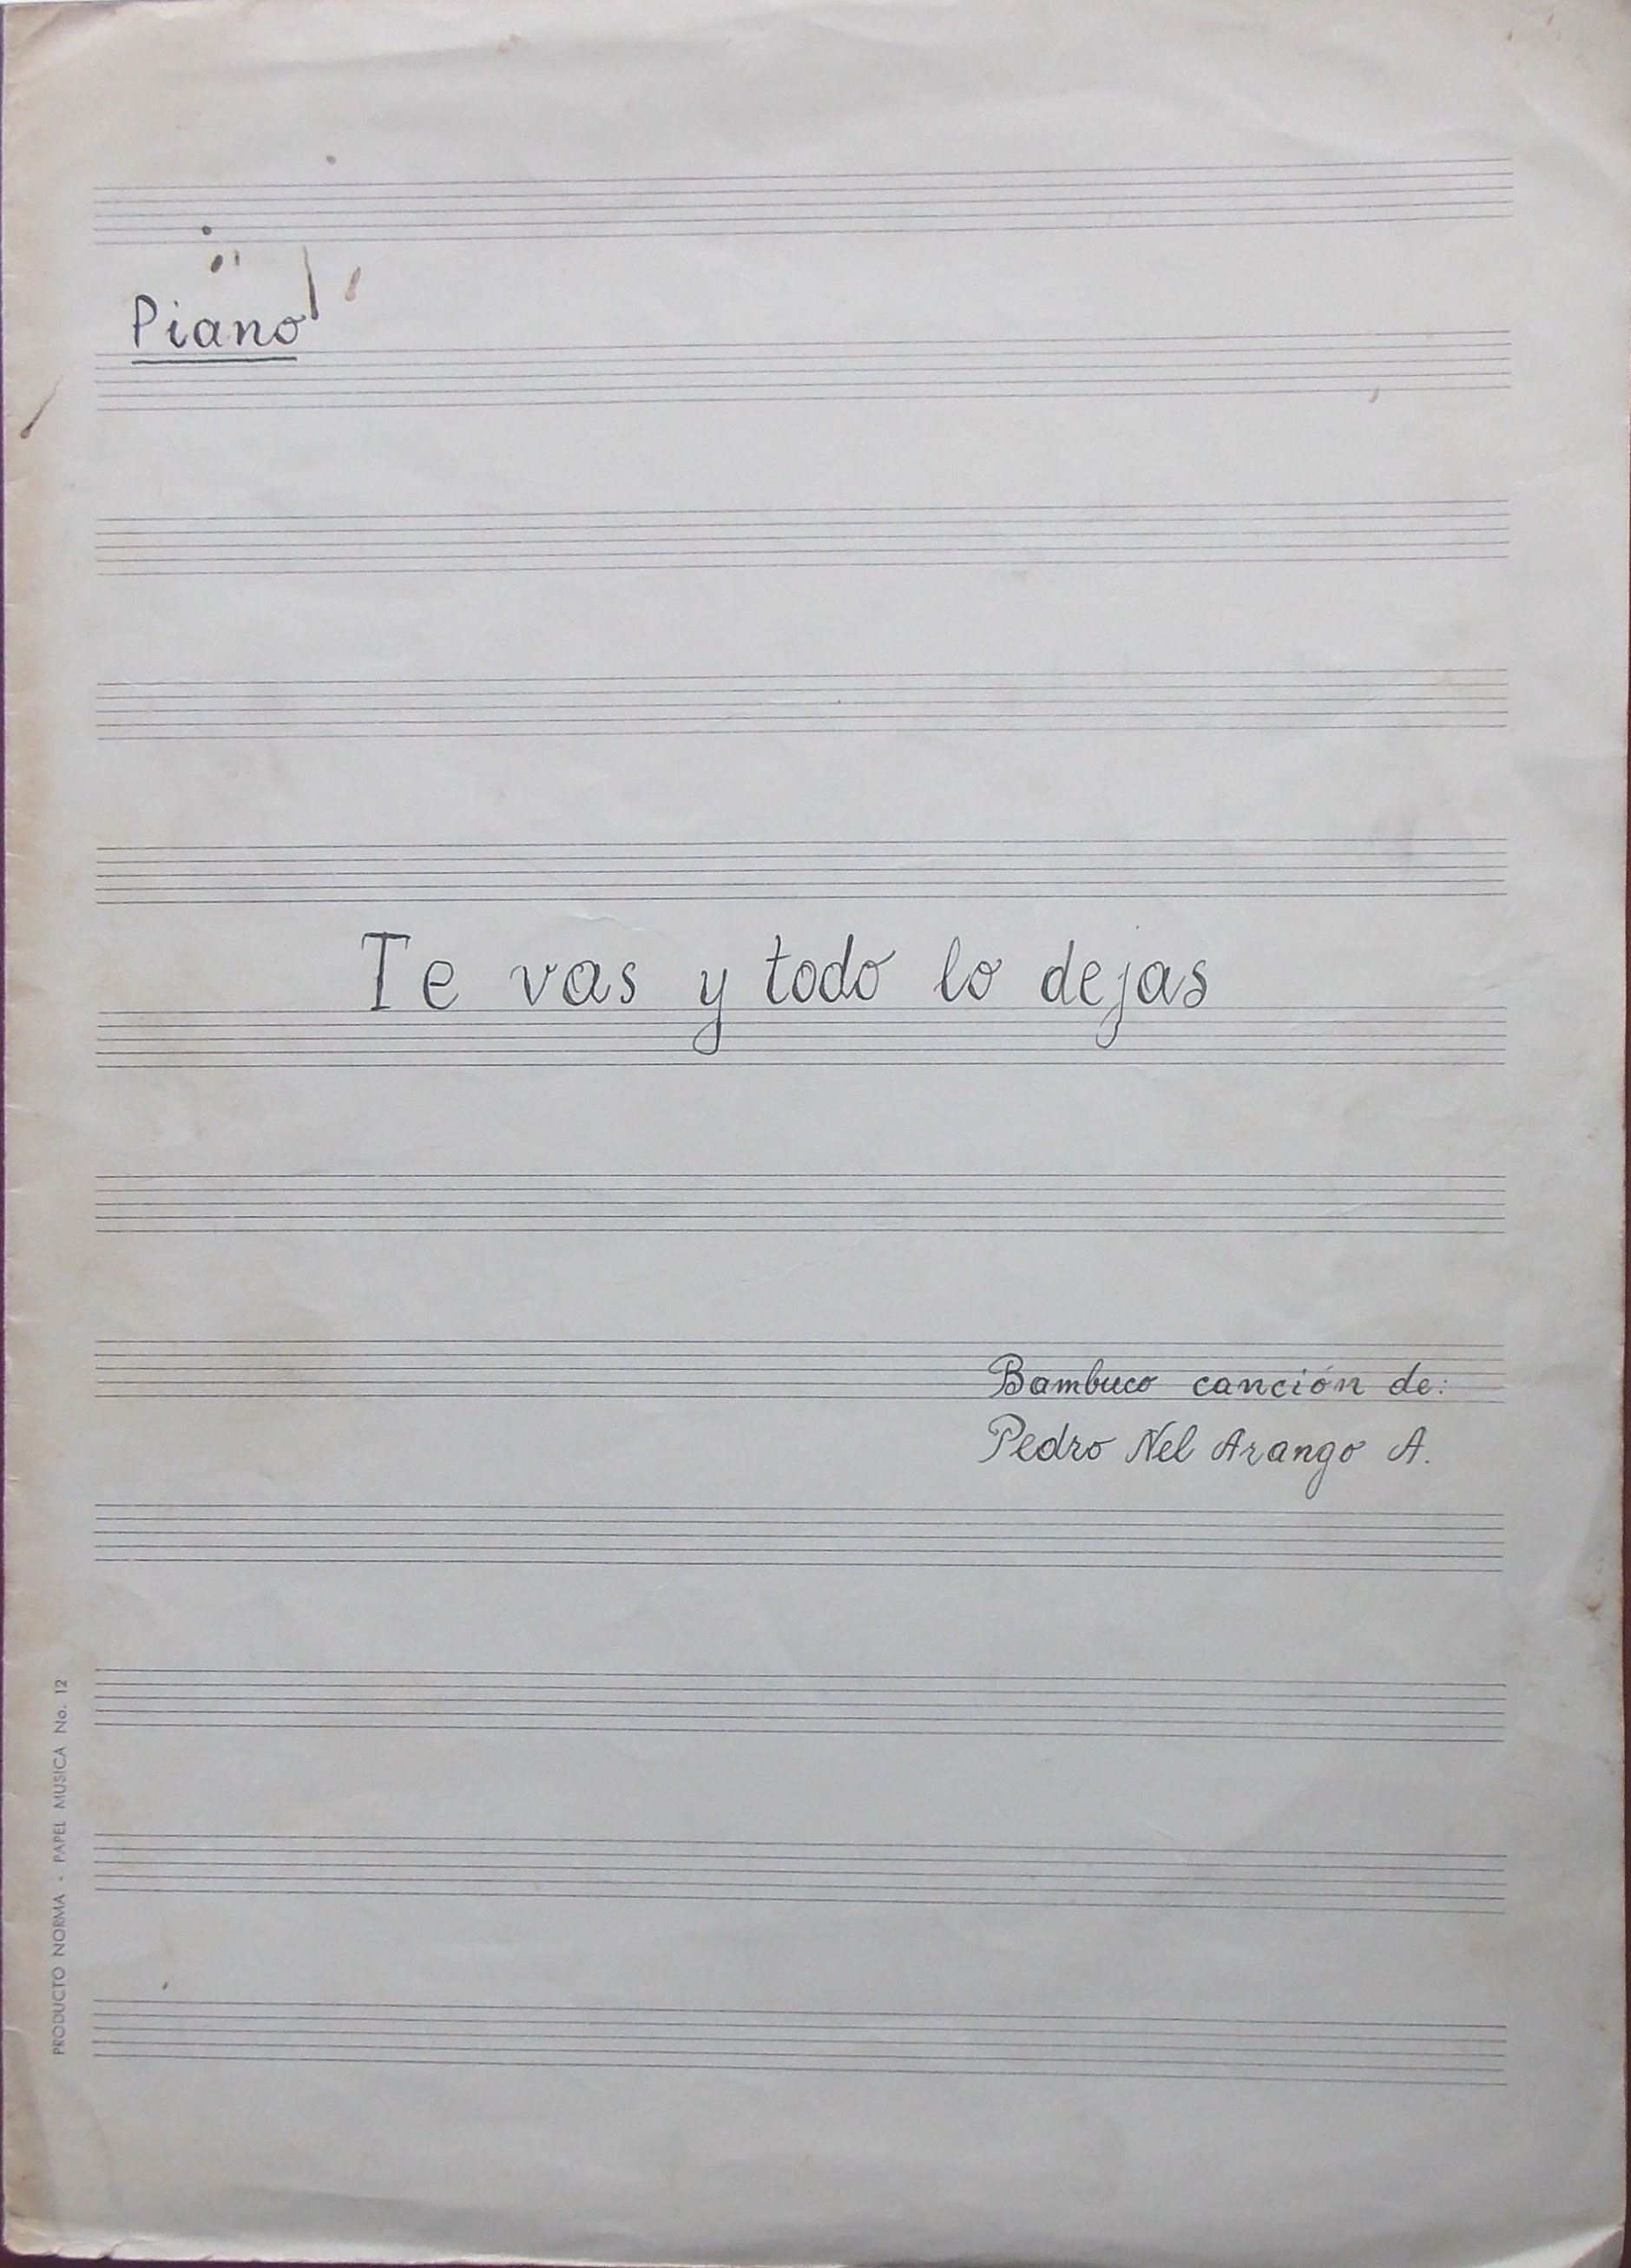 Piano
Te vas y todo lo dejas
Bambuco canción de:
Pedro Nel Arango A.
PRODUCTO NORMA - PAPEL MUSICA No. 12